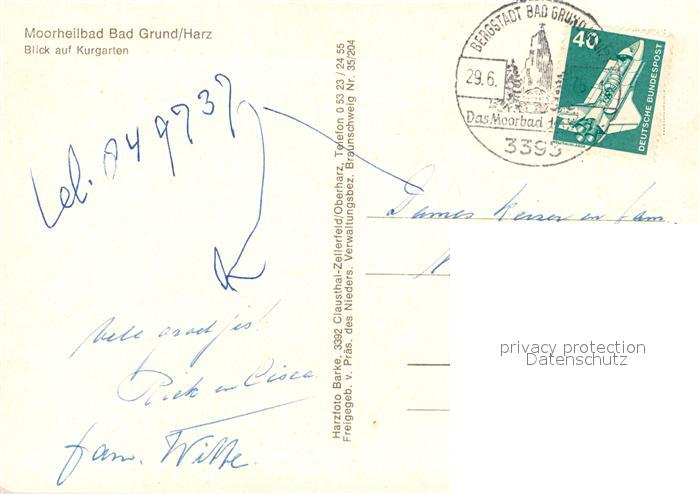 Moorheilbad Bad Grund/Harz
Blick auf Kurgarten
tel. 049737
vele groetjes!
Rick en Cisca
fam. Witte.
Harzfoto Barke, 3392 Clausthal-Zellerfeld/Oberharz, Telefon 0 53 23 / 24 55
Freigegeb. v. Präs. des Nieders. Verwaltungsbez. Braunschweig Nr. 35/204
BERGSTADT BAD GRUND
29.6.
Das Moorbad
3393
40
DEUTSCHE BUNDESPOST
Dames Keizer en fam.
privacy protection
Datenschutz